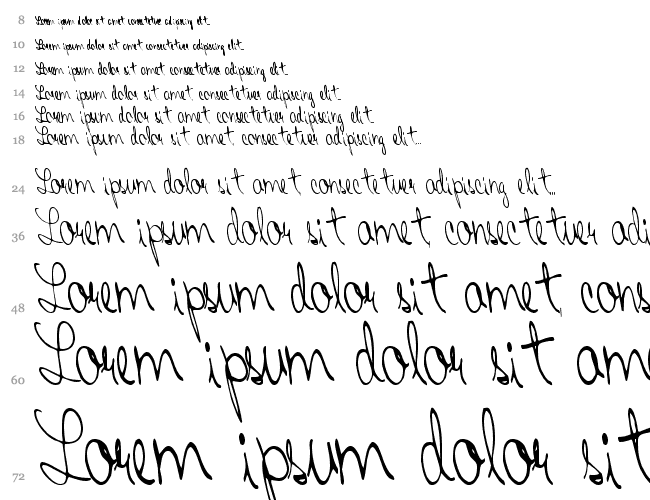 8 Lorem ipsum dolor sit amet consectetuer adipiscing elit...
10 Lorem ipsum dolor sit amet consectetuer adipiscing elit...
12 Lorem ipsum dolor sit amet consectetuer adipiscing elit...
14 Lorem ipsum dolor sit amet consectetuer adipiscing elit...
16 Lorem ipsum dolor sit amet consectetuer adipiscing elit...
18 Lorem ipsum dolor sit amet consectetuer adipiscing elit...
24 Lorem ipsum dolor sit amet consectetuer adipiscing elit...
36 Lorem ipsum dolor sit amet consectetuer adi
48 Lorem ipsum dolor sit amet, cons
60 Lorem ipsum dolor sit am
72 Lorem ipsum dolor sit